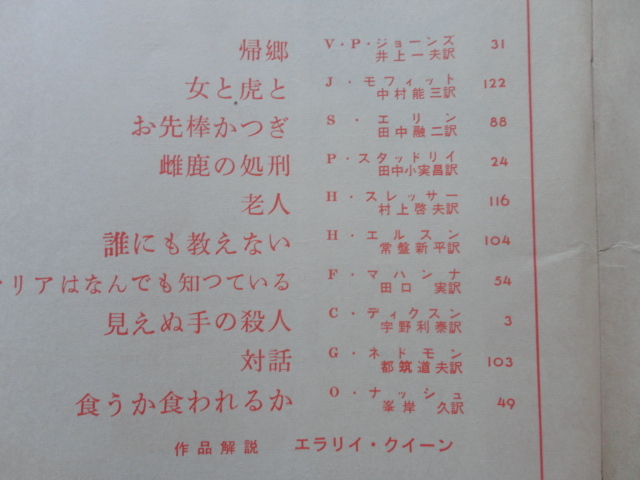 帰郷 V・P・ジョーンズ 井上一夫訳 31
女と虎と J・モフィット 中村能三訳 122
お先棒かつぎ S・エリン 田中融二訳 88
雌鹿の処刑 P・スタッドリイ 田中小実昌訳 24
老人 H・スレッサー 村上啓夫訳 116
誰にも教えない H・エルスン 常盤新平訳 104
リアはなんでも知つている F・マハンナ 田口実訳 54
見えぬ手の殺人 C・ディクスン 宇野利泰訳 3
対話 G・ネドモン 都筑道夫訳 103
食うか食われるか O・ナッシュ 峯岸久訳 49
作品解説 エラリイ・クイーン